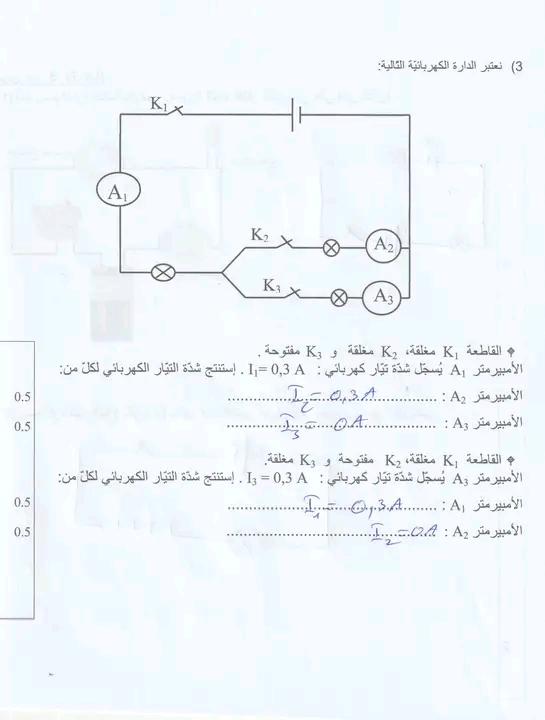 3) نعتبر الدارة الكهربائيّة التّالية:
K1
A1
K2
A2
K3
A3
♦ القاطعة K1 مغلقة، K2 مغلقة و K3 مفتوحة .
الأمبيرمتر A1 يُسجّل شدّة تيّار كهربائي : I1= 0,3 A . إستنتج شدّة التيّار الكهربائي لكلّ من:
الأمبيرمتر A2 : .......... I2 = 0,3 A .......... 0.5
الأمبيرمتر A3 : .......... I3 = 0A .......... 0.5
♦ القاطعة K1 مغلقة، K2 مفتوحة و K3 مغلقة.
الأمبيرمتر A3 يُسجّل شدّة تيّار كهربائي : I3 = 0,3 A . إستنتج شدّة التيّار الكهربائي لكلّ من:
الأمبيرمتر A1 : .......... I1 = 0,3 A .......... 0.5
الأمبيرمتر A2 : .......... I2 = 0A .......... 0.5